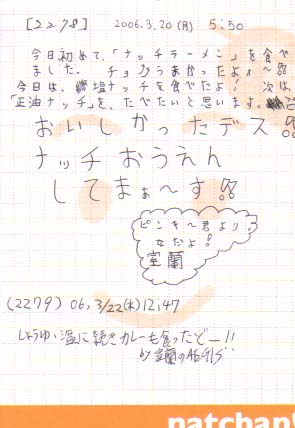 [2278] 2006.3.20(月) 5:50
今日初めて、「ナッチラーメン」を食べ
ました。 チョクうまかったよィ〜
今日は、塩ナッチを食べたよ! 次は、
「正油ナッチ」を、たべたいと思います。
おいしかったデス
ナッチおうえん
してまぁ〜す
ピンキ〜君より。
なたよ!
室蘭
(2279) 06, 3/22(水)12:47
しょうゆ、塩に続きカレーも食ったどー!!
by 室蘭の
natchan!